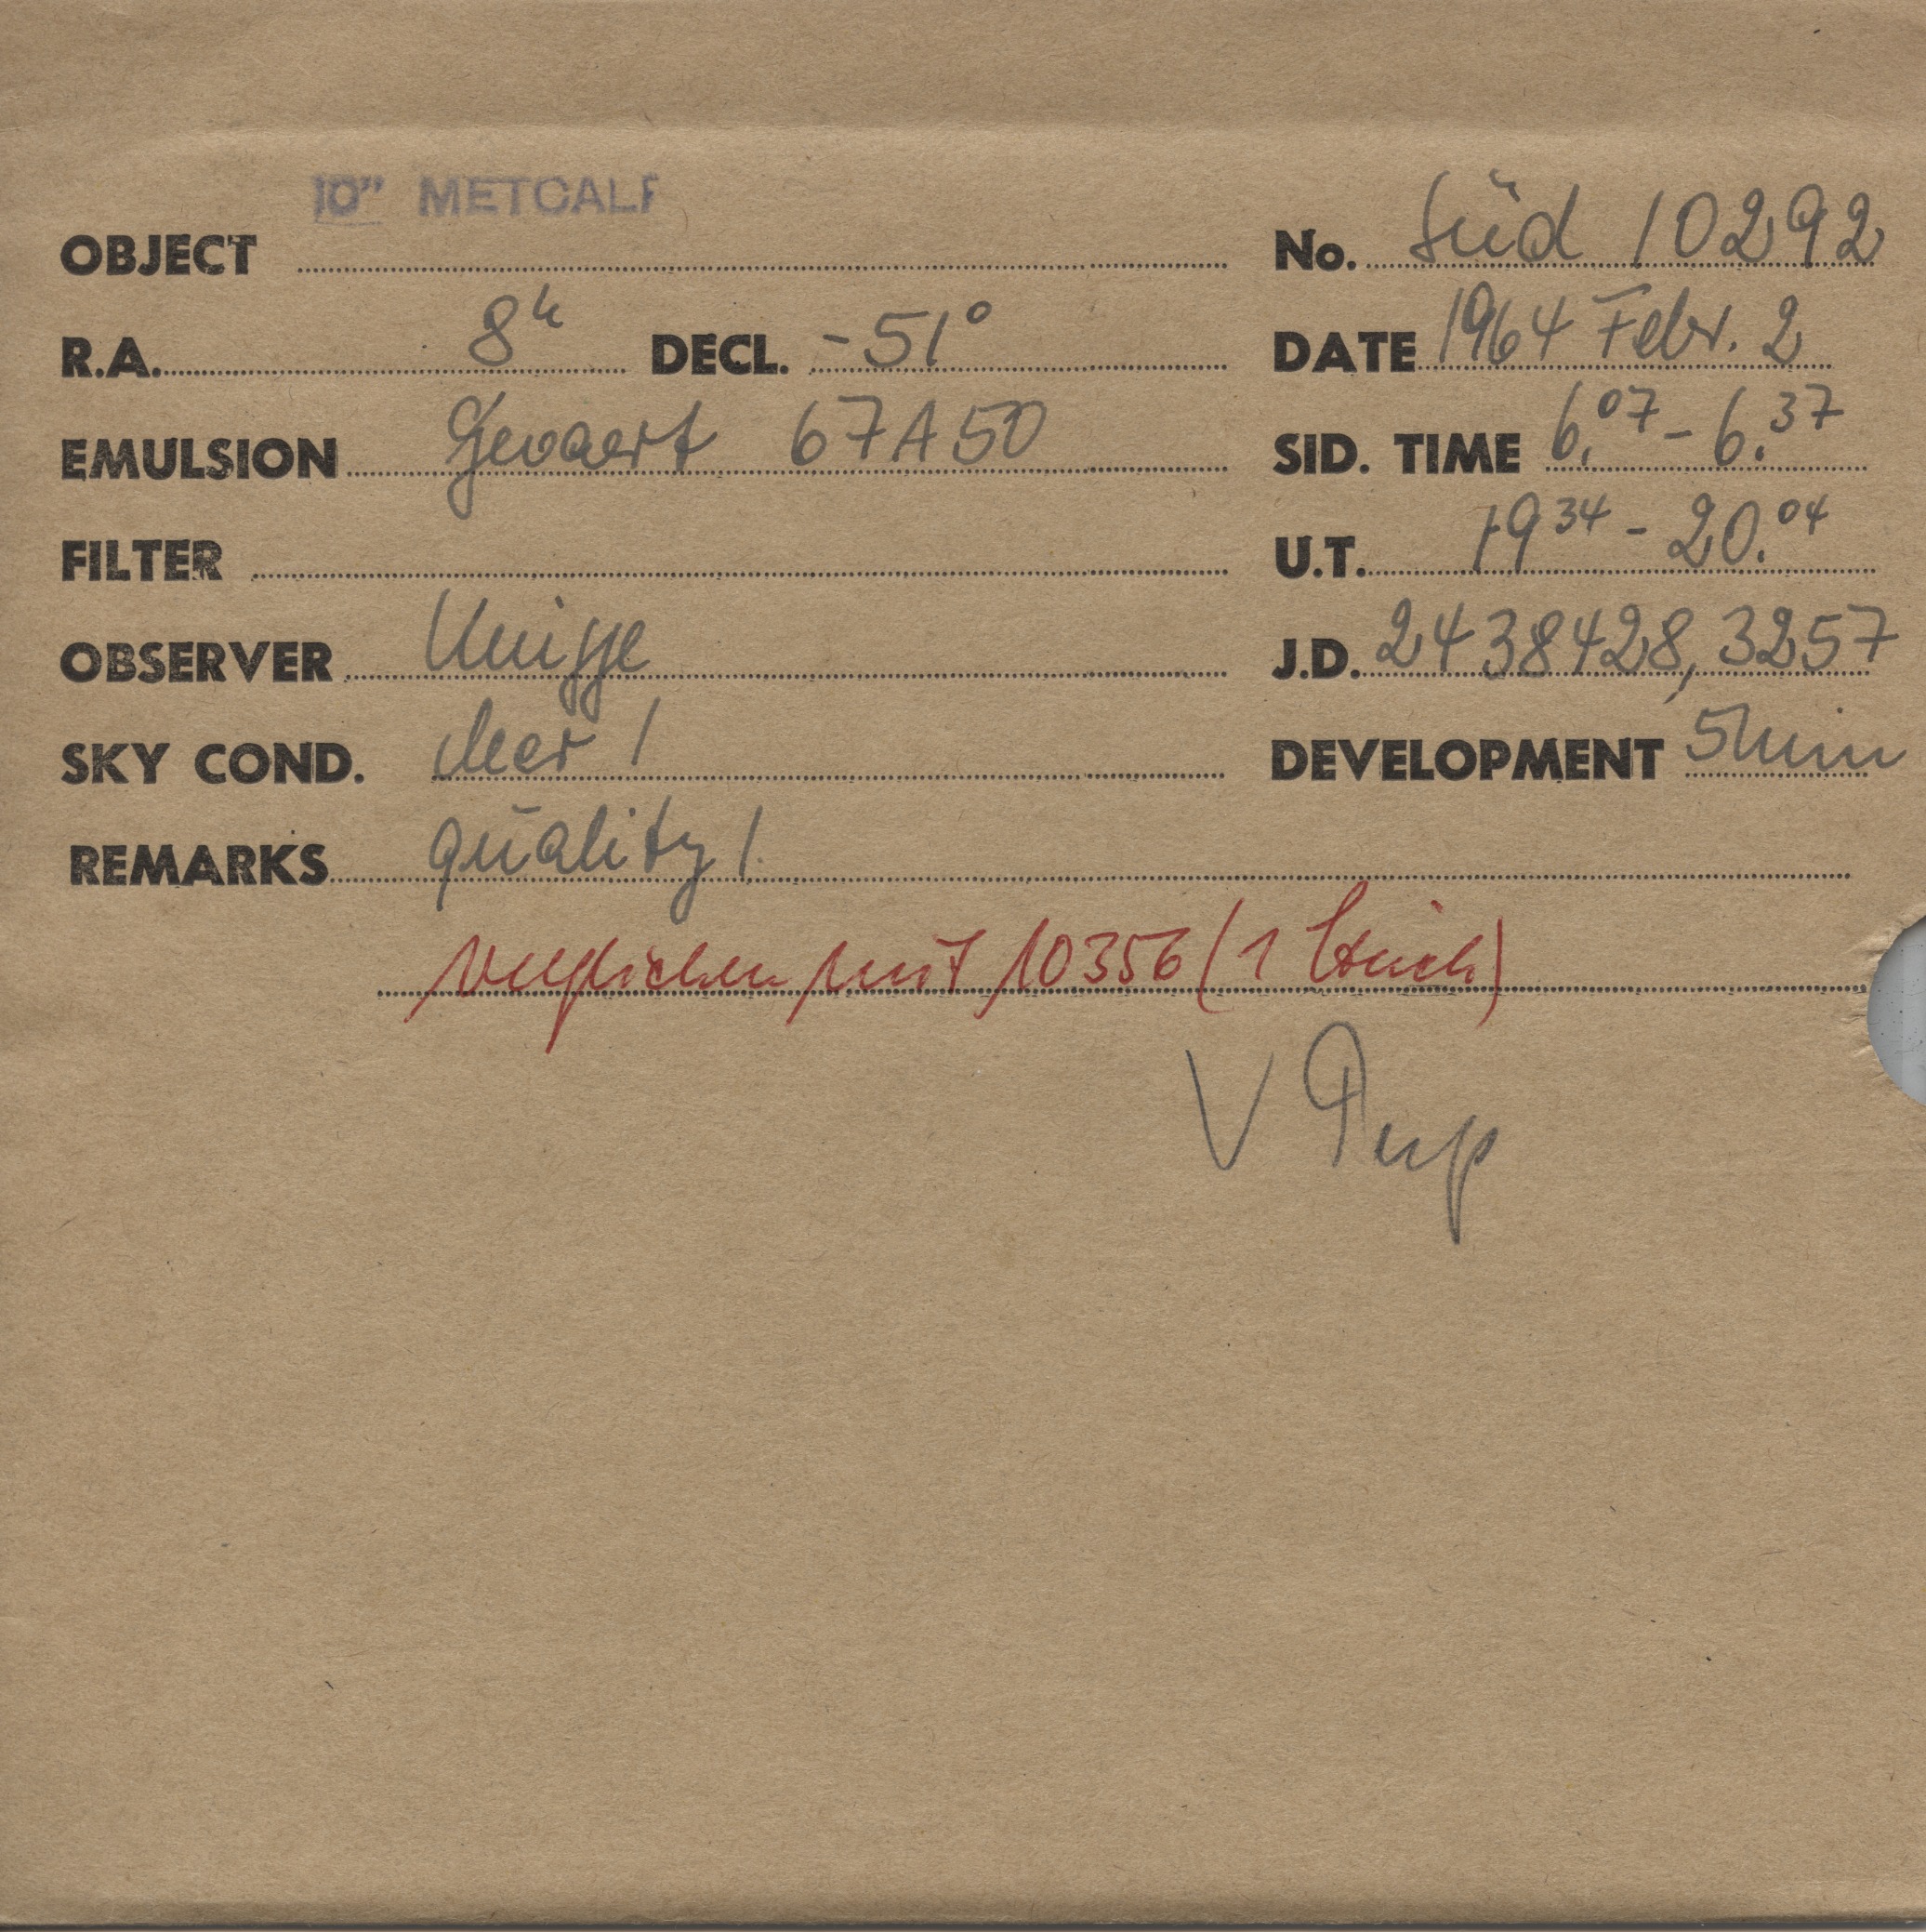 10" METCALF
OBJECT No. Süd 10292
R.A. 8h DECL. -51° DATE 1964 Febr. 2
EMULSION Gevaert 67A50 SID. TIME 6.07 - 6.37
FILTER U.T. 19 34 - 20.04
OBSERVER Knigge J.D. 2438428,3257
SKY COND. clear 1 DEVELOPMENT 5min
REMARKS quality 1
verglichen mit 10356 (1 Strich)
V Pup